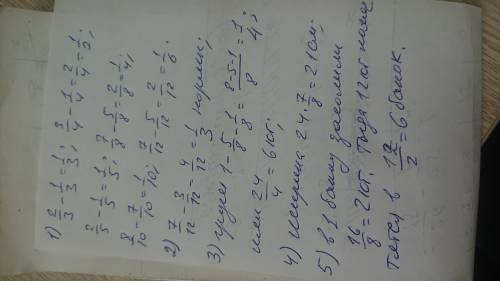 1) 2/3 - 1/3 = 1/3; 3/4 - 1/4 = 2/4 = 1/2;
2/5 - 1/5 = 1/5; 7/8 - 5/8 = 2/8 = 1/4;
8/10 - 7/10 = 1/10; 7/12 - 5/12 = 2/12 = 1/6.
2) 7/12 - 3/12 = 4/12 = 1/3 нормы;
3) груши 1 - 5/8 - 1/8 = 8-5-1/8 = 1/4;
или 24/4 = 6 кг;
4) ширина 24 · 7/8 = 21 см;
5) в 1 банку засолили
16/8 = 2 кг. Тогда 12 кг поме
тятся в 12/2 = 6 банок.